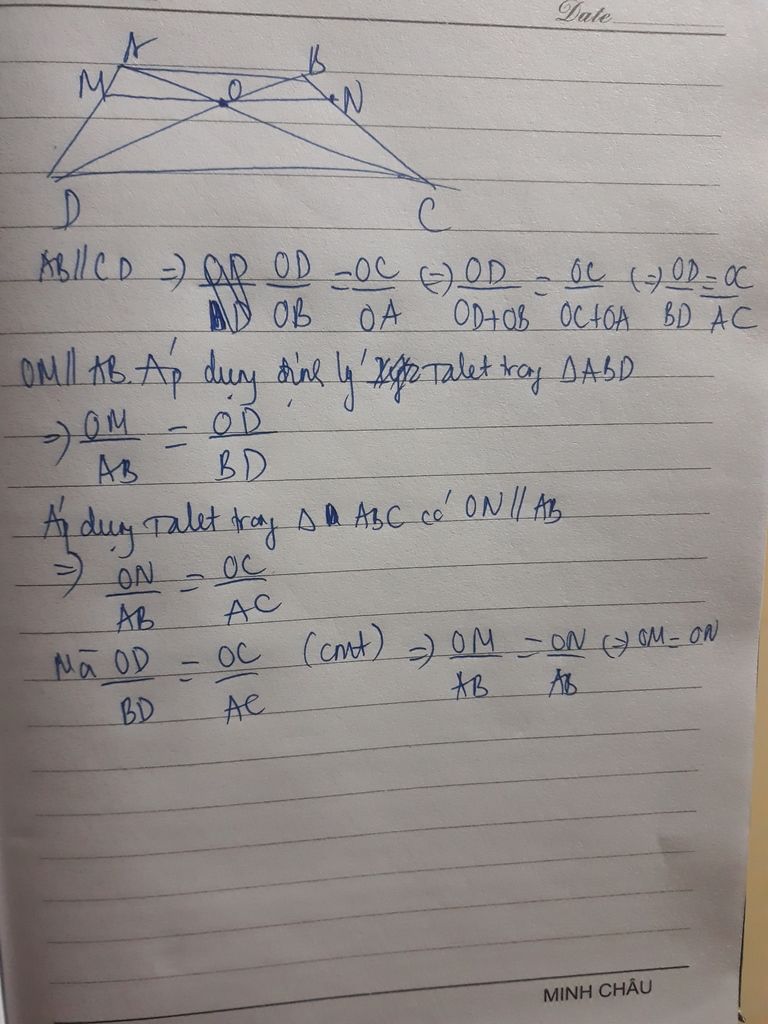 Date
A
B
M
O
N
D
C
AB//CD => OD/OB = OC/OA (=) OD/OD+OB = OC/OC+OA (=) OD/BD = OC/AC
OM//AB. Áp dụng định lý Talet trong ΔABD
=> OM/AB = OD/BD
Áp dụng Talet trong Δ ABC có ON//AB
=> ON/AB = OC/AC
Mà OD/BD = OC/AC (cmt) => OM/AB = ON/AB (=) OM = ON
MINH CHÂU